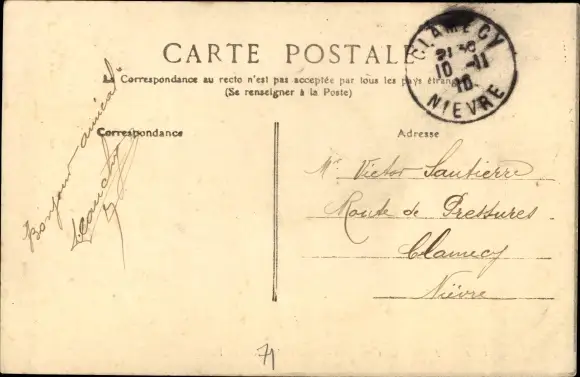 CARTE POSTALE
La Correspondance au recto n'est pas acceptée par tous les pays étrangers
(Se renseigner à la Poste)
CLAMECY
10 -11
10
NIEVRE
Correspondance
Adresse
Bonjour amical
Mr Victor Sautierre
Route de Pressures
Clamecy
Nièvre
71